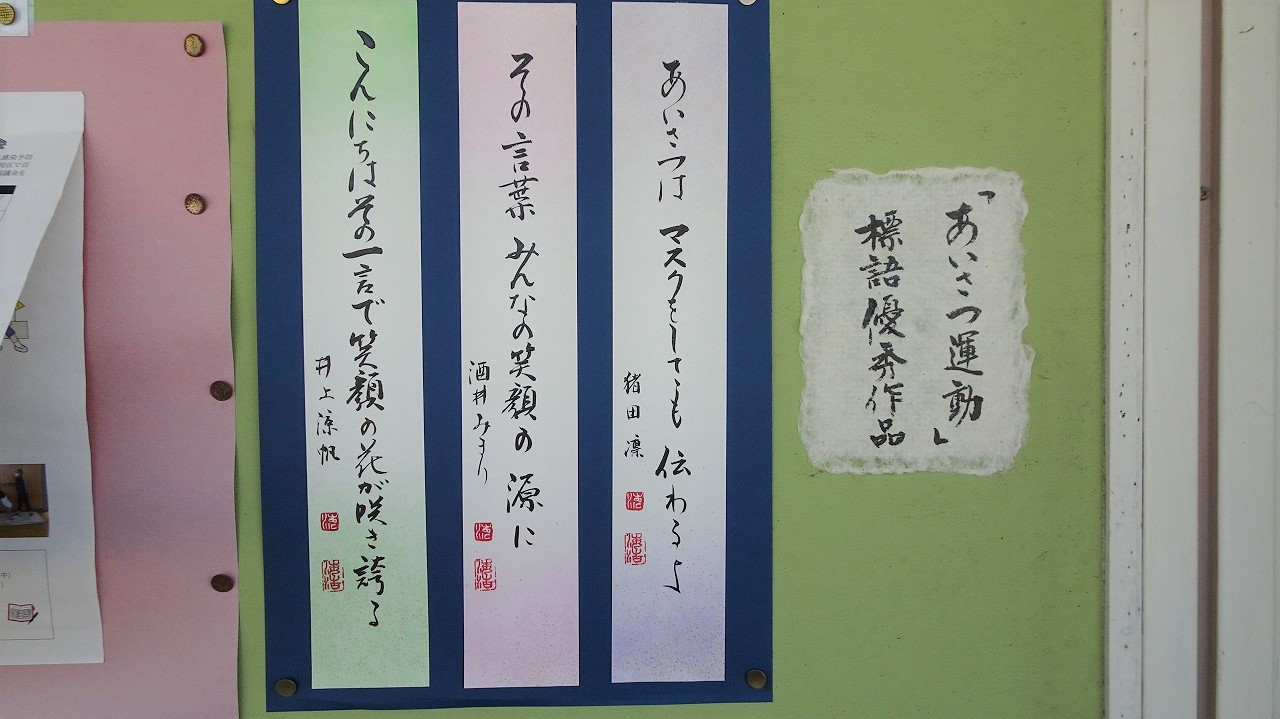 「あいさつ運動」
標語優秀作品
あいさつは マスクをしてても 伝わるよ
猪田 凛
その言葉 みんなの笑顔の 源に
酒井みのり
こんにちは その一言で 笑顔の花が咲き誇る
井上涼帆
感染予防